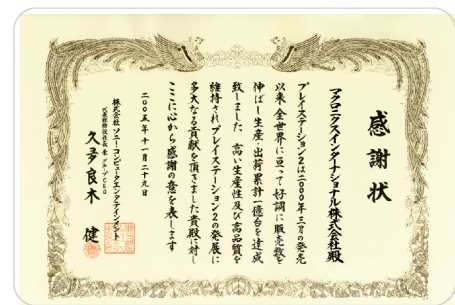 感謝状
マクロニクスインターナショナル株式会社殿
プレイステーション2は二〇〇〇年三月の発売
以来、全世界に亘って好調に販売数を
伸ばし生産・出荷累計一億台を達成
致しました 高い生産性及び高品質を
維持されプレイステーション2の発展に
多大なる貢献を頂きました貴殿に対し
ここに心から感謝の意を表します
二〇〇五年十一月二十九日
株式会社 ソニー・コンピュータエンタテインメント
代表取締役社長 兼 グループCEO
久多良木 健